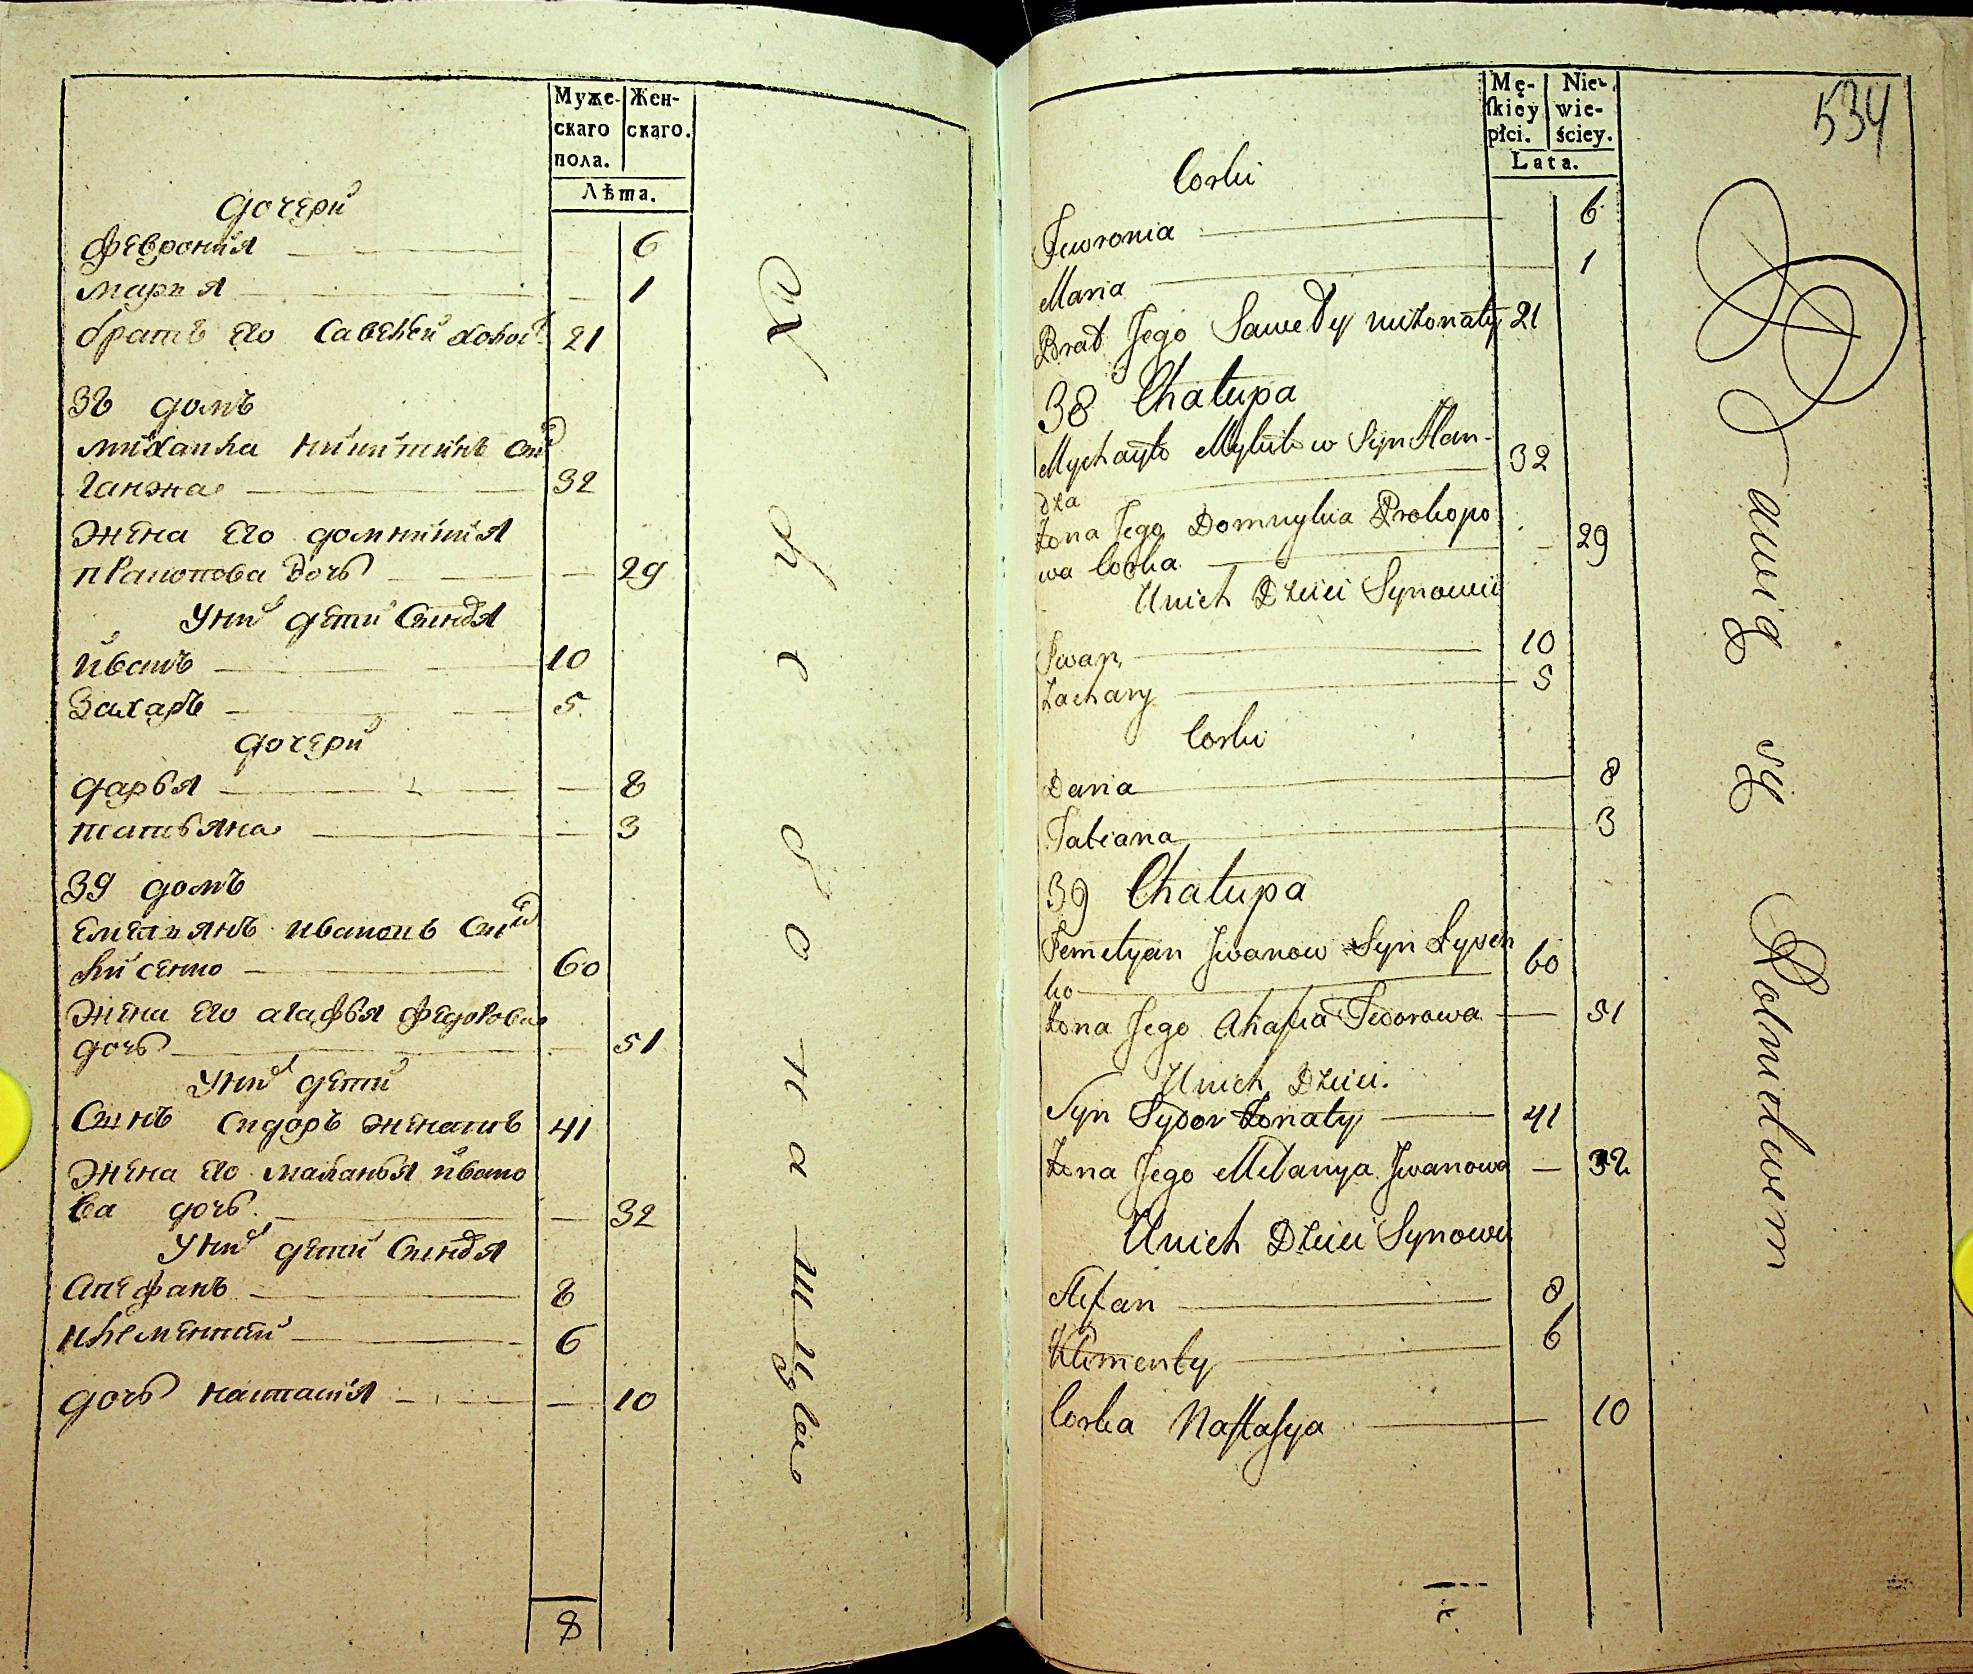 Муже-
скаго
пола.
Жен-
скаго.
Лѣта.
дочери
Феврония 6
марья 1
братъ его Савелей холос 21
38 домъ
михаила никитинъ Сы
Ганжа 32
жена его домникия
пракопова дочь 29
у них дети Синовя
иванъ 10
Захаръ 5
дочери
дарья 8
татьяна 3
39 домъ
Емельянъ ивановъ Сы
лисенко 60
жена его агафья федорова
дочь 51
у них дети
Синъ Сидоръ женатъ 41
жена его маланья ивано
ва дочь 32
у них дети Синовя
Степанъ 8
клементей 6
дочь настасия 10
8
Хлебопашцы
534
Mę-
skiey
płci.
Nie-
wie-
ściey.
Lata.
Corki
Fewronia 6
Maria 1
Brat Jego Sawety nieżonaty 21
38 Chałupa
Mychayło Mykitow Syn Han-
dża 32
żona Jego Domnykia Prokopo
wa Corka 29
U nich Dzieci Synowie
Jwan 10
Zachary 5
Corki
Daria 8
Tatiana 3
39 Chałupa
Jemelyan Jwanow Syn Łysen
ko 60
żona Jego Ahafia Fedorowa 51
U nich Dzieci.
Syn Sydor żonaty 41
żona Jego Melanya Jwanowa 32
U nich Dzieci Synowie
Stefan 8
Klimenty 6
Corka Nastasya 10
Bawią się Rolnictwem